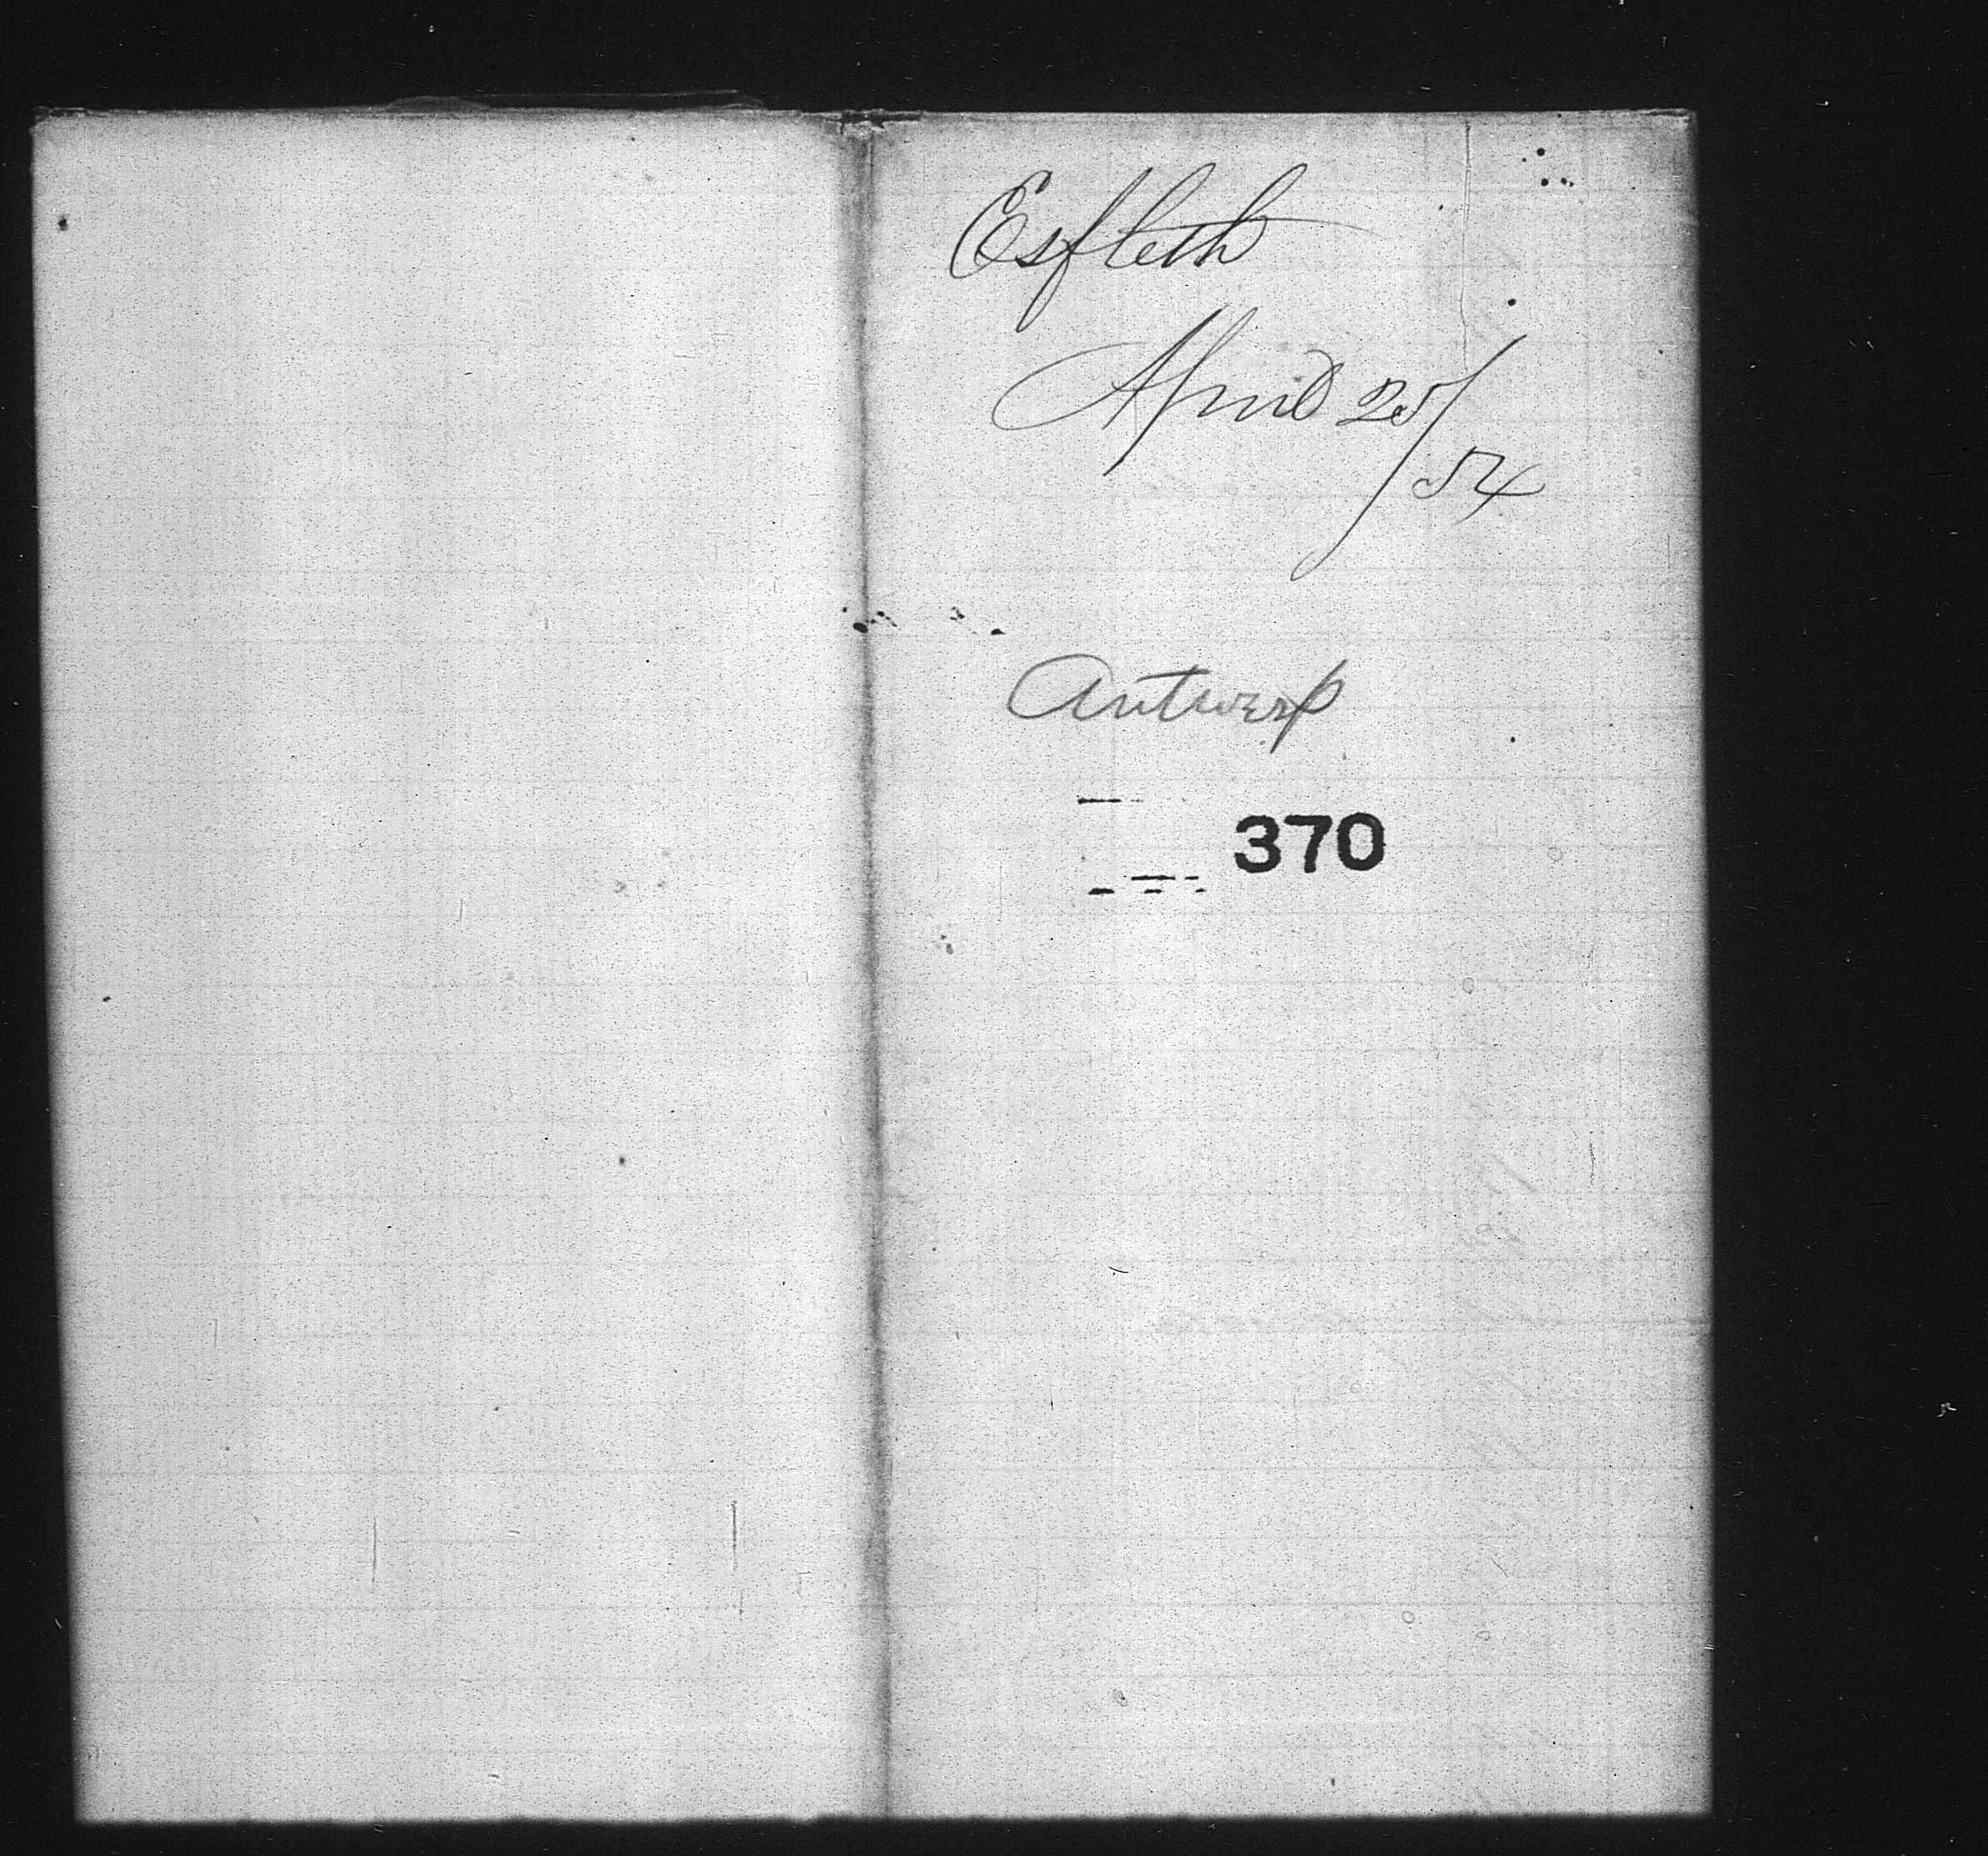 Esfleth
April 25/
54
Antwerp
370